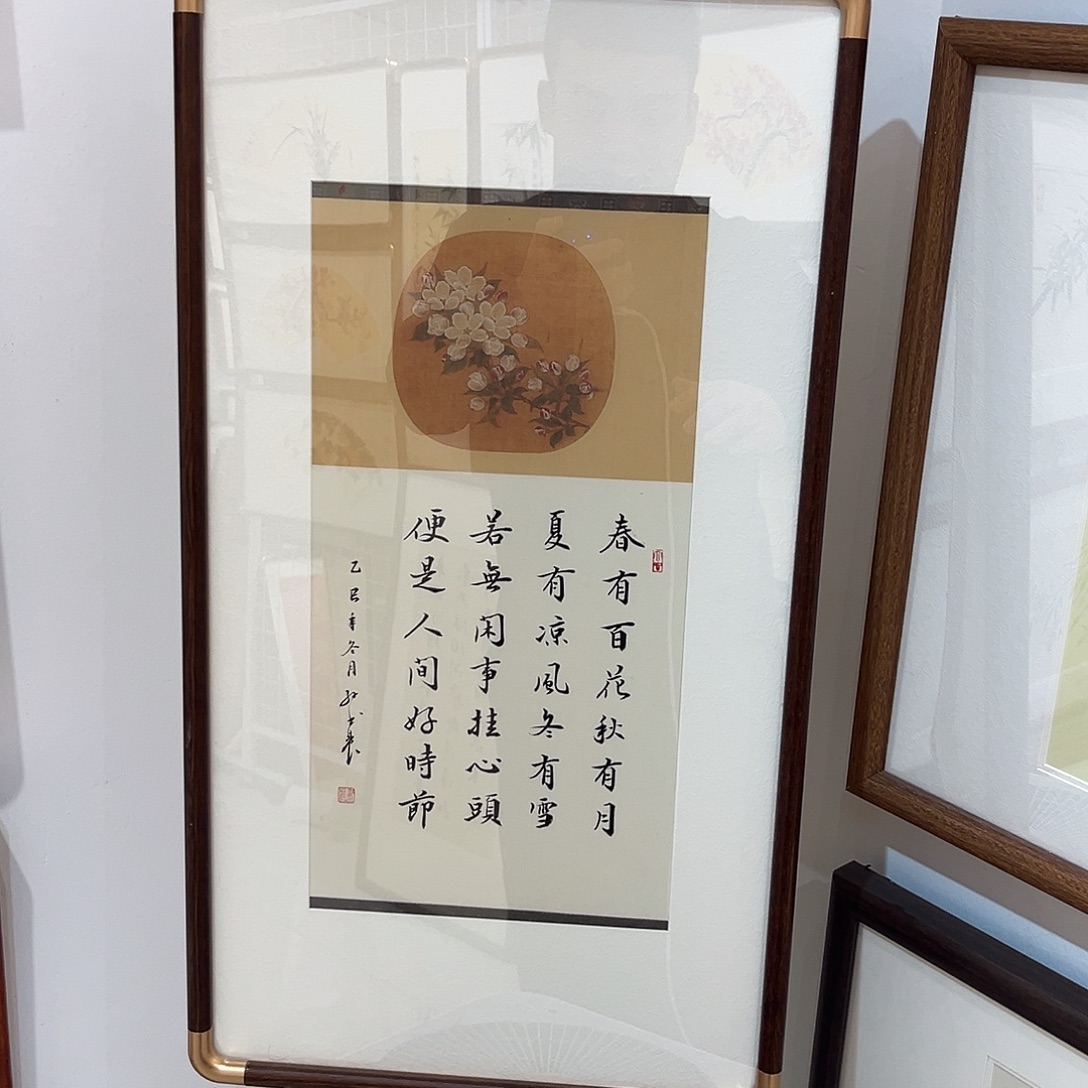 春有百花秋有月
夏有凉風冬有雪
若無閑事挂心頭
便是人间好時節
乙巳年冬月